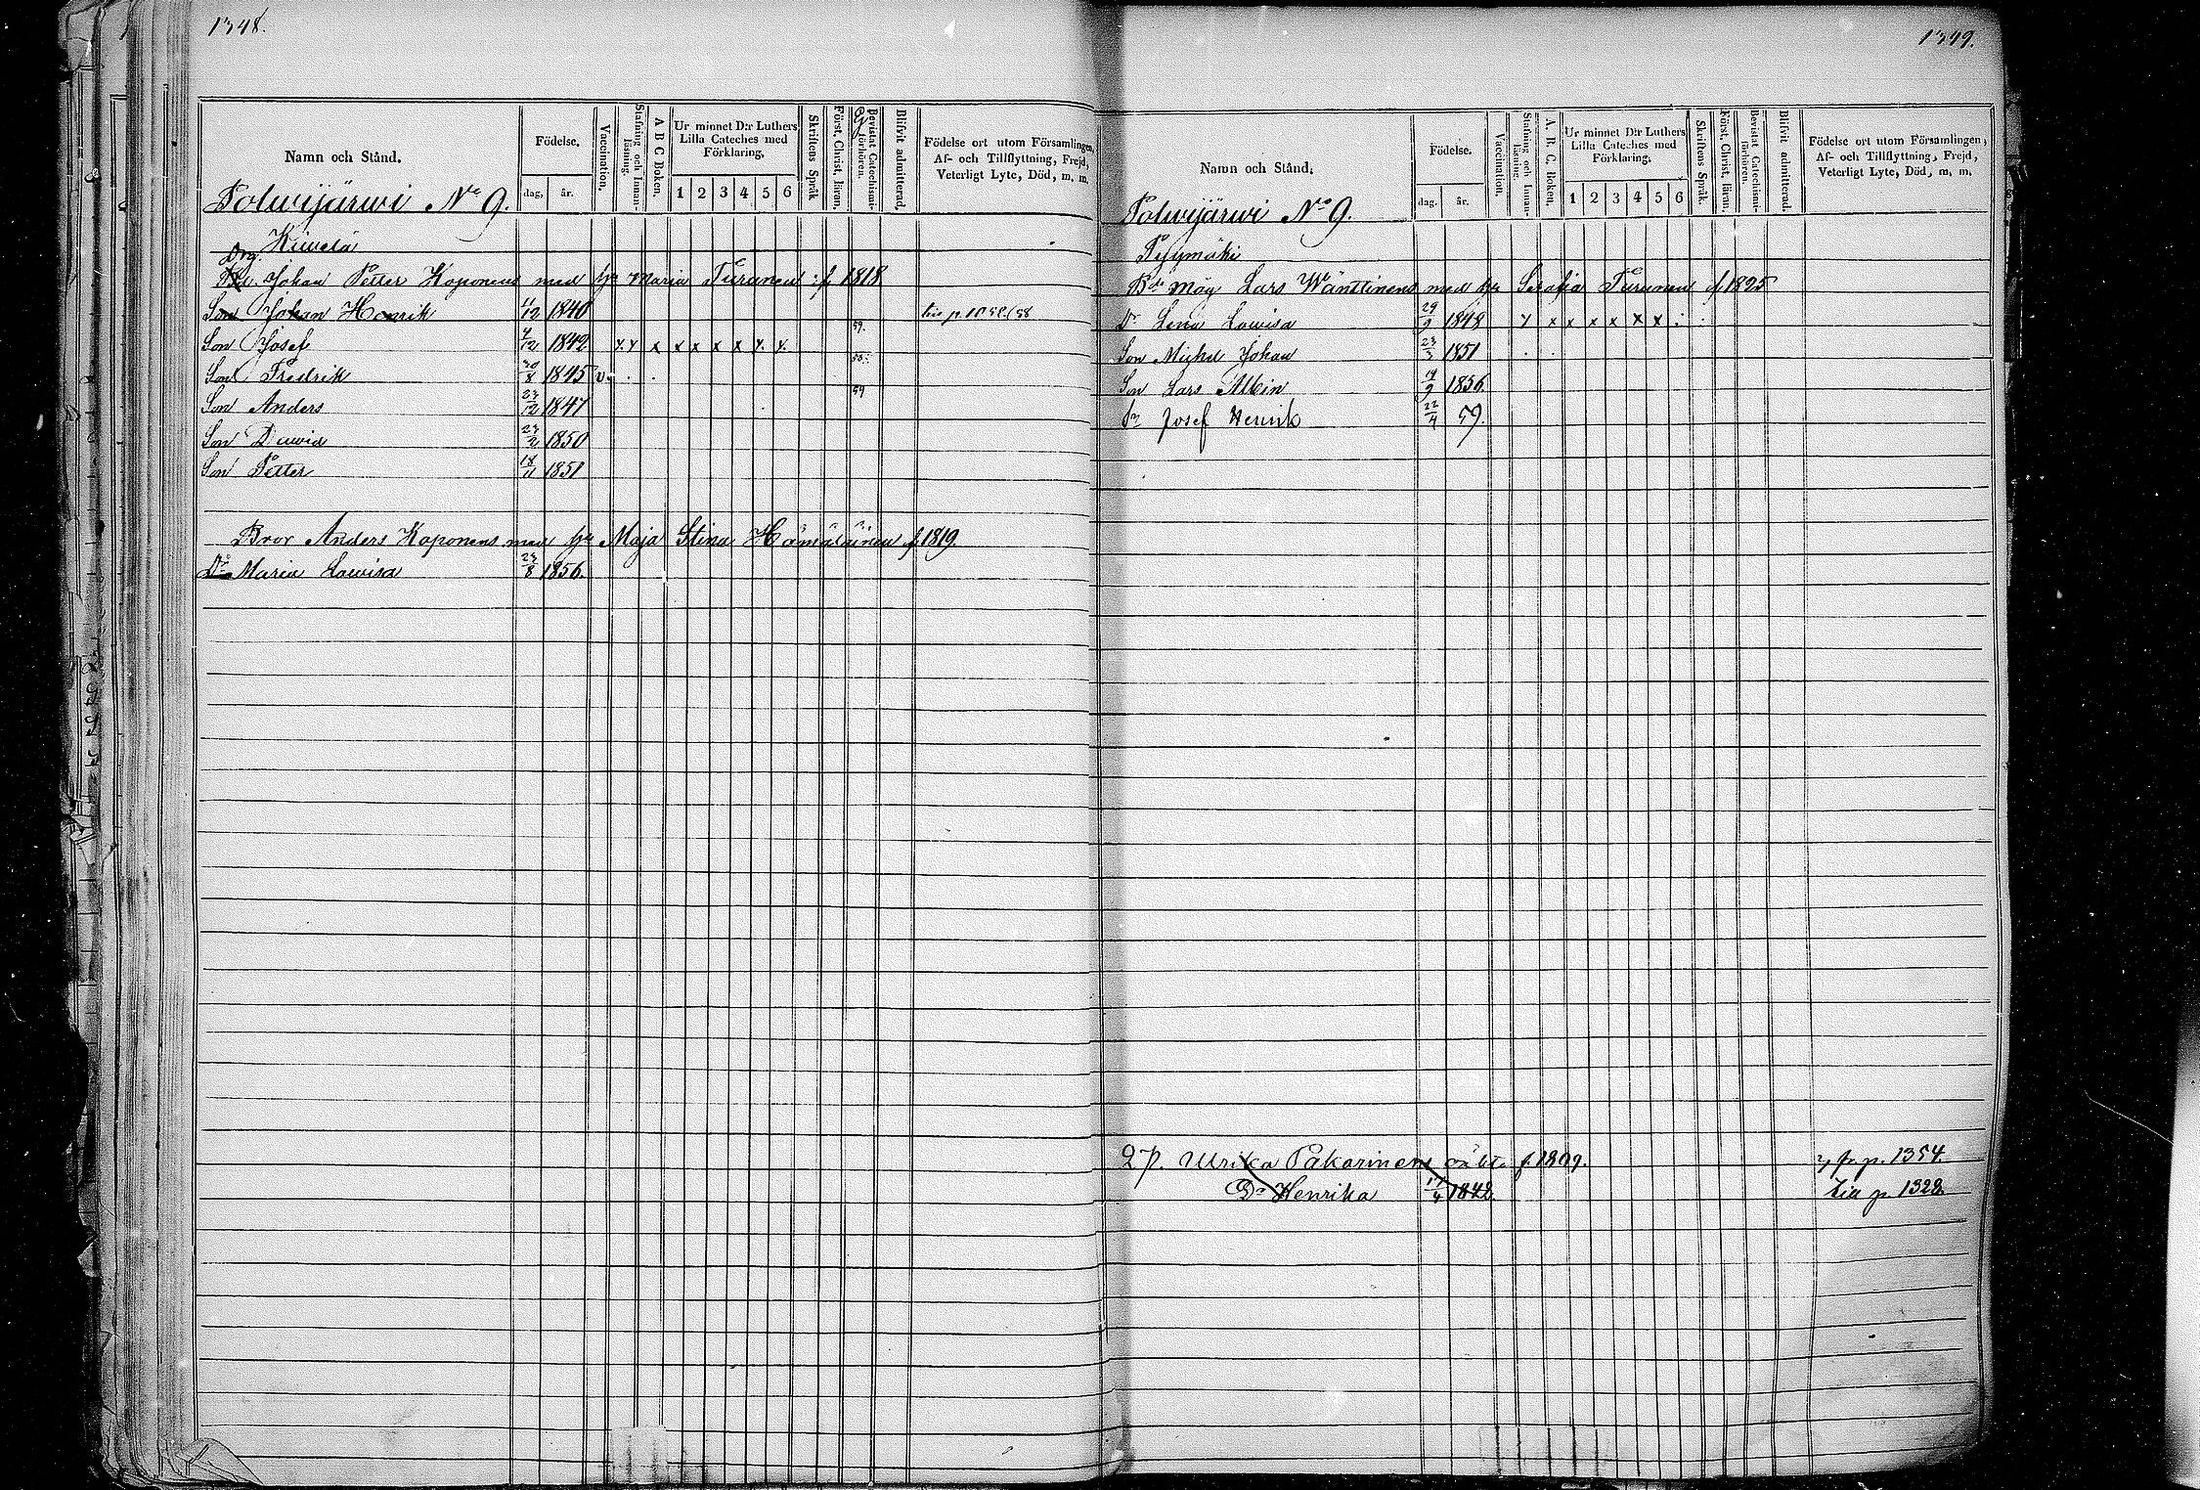 1348.
Namn och Stånd.
Födelse.
dag, år.
Vaccination.
Stafning och Innan-läsning.
A B C Boken.
Ur minnet D:r Luthers Lilla Cateches med Förklaring.
1 2 3 4 5 6
Skriftens Språk
Först. Christ. läran.
Bevistat Catechismi-förhören.
Blifvit admitterad.
Födelse ort utom Församlingen,
Af- och Tillflyttning, Frejd,
Veterligt Lyte, Död, m. m.
Polwijärwi No 9.
Kiwelä
Johan Petter Koponens med hu Maria Turunen f 1818
Son Johan Henrik 4/12 1840 p. 1052/58
Son Josef 4/12 1842 x x x x x x x x x 59.
Son Fredrik 30/8 1845 v. 58.
Son Anders 23/12 1847 59
Son Dawid 24/2 1850
Son Petter 18/11 1851
Bror Anders Koponens med hu Maja Stina Hämäläinen f 1819.
Dr Maria Lowisa 23/8 1856.
1349.
Namn och Stånd.
Födelse.
dag. år.
Vaccination.
Stafning och Innan-läsning.
A. B. C. Boken.
Ur minnet D:r Luthers Lilla Cateches med Förklaring.
1 2 3 4 5 6
Skriftens Språk.
Först. Christ. läran.
Bevistat Catechismi-förhören.
Blifvit admitterad.
Födelse ort utom Församlingen,
Af- och Tillflyttning, Frejd,
Veterligt Lyte, Död, m, m.
Polwijärwi No 9.
Pesymäki
Bde måg Lars Wänttinens med hu Serafia Turunen f 1825
Dr Lena Lowisa 29/9 1848 x x x x x x x
Son Michel Johan 23/3 1851
Son Lars Albin 14/9 1856.
Sn Josef Henrik 22/4 59.
Q P. Ulrika Pakarinens oäkta f. 1809. p. 1354.
Dr Henrika 17/4 1842. p. 1328.